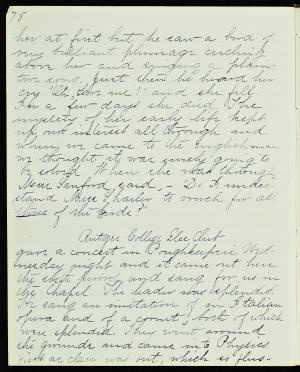 78
her at first but he saw a bird of
very brilliant plumage circling
above her and singing a plain-
tive song, just then he heard her
cry "Ah, love me!" and she fell.
In a few days she died. The
mystery of her early life kept
up our interest all through and
when we came to the Englishman
we thought it was surely going to
be solved. When she was through
Miss Sanford said, - "Do I under-
stand Miss to vouch for all
of the birds?"
Rutgers College Glee Club
gave a concert in Poughkeepsie Wed-
nesday night and it came out here
the next and sang for us in
the chapel. The leader was splendid.
He sang an imitation of an Italian
opera and of a cornet, both of which
were splendid. They went around
the grounds and came into Physics
just as class was out, which is thus-